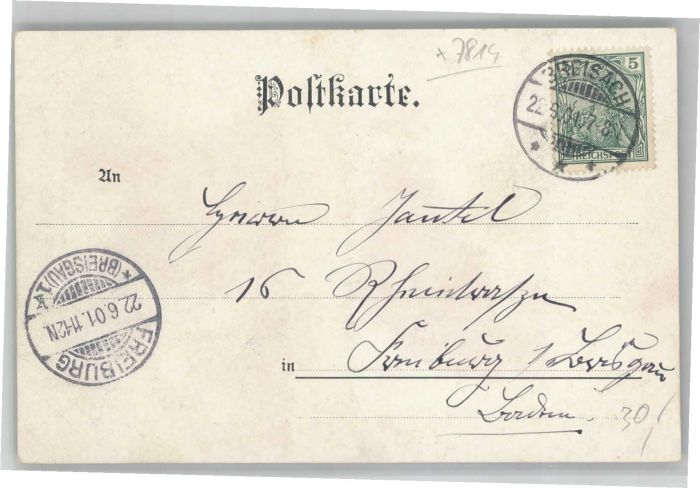 + 7814
5
BREISACH
22.6.01.7-8N.
REICHSPOST
Postkarte.
An
Herrn Jantel
16 Rheinstrasse
in Freiburg / Breisgau
Baden.
30,
FREIBURG
(BREISGAU) 1
22.6.01.11-12N.